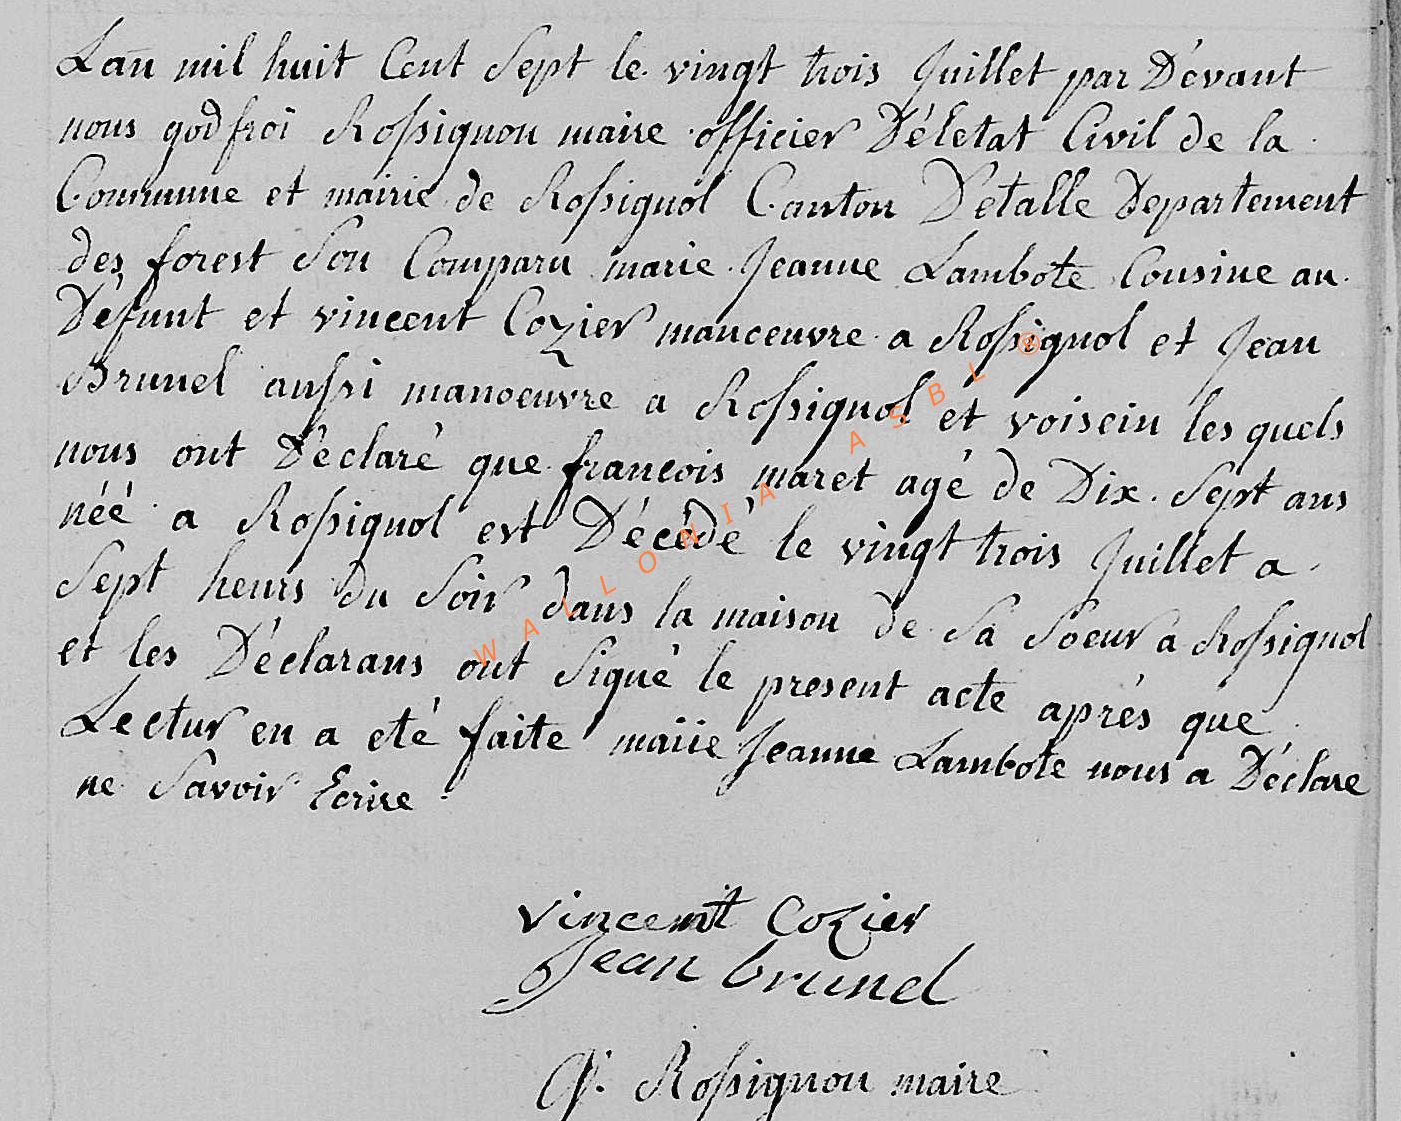 Lan mil huit Cent Sept le vingt trois Juillet par Dévant
nous godfroi Rossignon maire officier D'életat Civil de la
Commune et mairie de Rossignol Canton Détalle Departement
des forest Son Comparu marie Jeanne Lambote Cousine au
Défunt et vincent Cozier manœuvre a Rossignol et Jean
Brunel aussi manoeuvre a Rossignol et voisein les quels
nous ont Déclaré que francois maret agé de Dix Sept ans
néé a Rossignol est Décédé le vingt trois Juillet a
Sept heurs du Soir dans la maison de Sa Soeur a Rossignol
et les Déclarans ont Signé le present acte aprés que
Lectur en a eté faite marie Jeanne Lambote nous a Déclare
ne Savoir Ecrire
vincent Cozier
Jean brunel
G. Rossignon maire
WALLONIA ASBL ®